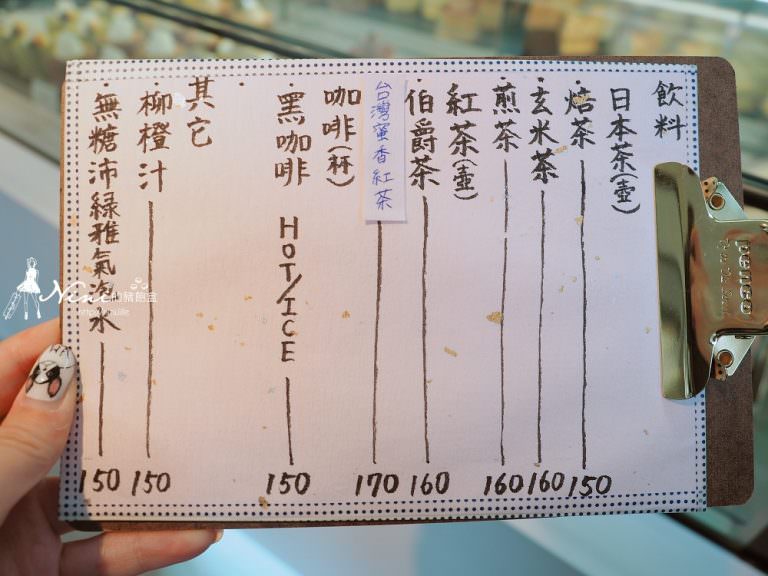 飲料
日本茶(壺)
·焙茶 150
·玄米茶 160
·煎茶 160
紅茶(壺)
·伯爵茶 160
台灣蜜香紅茶 170
咖啡(杯)
·黑咖啡 HOT/ICE 150
其它
·柳橙汁 150
·無糖沛綠雅氣泡水 150
penco
Nini